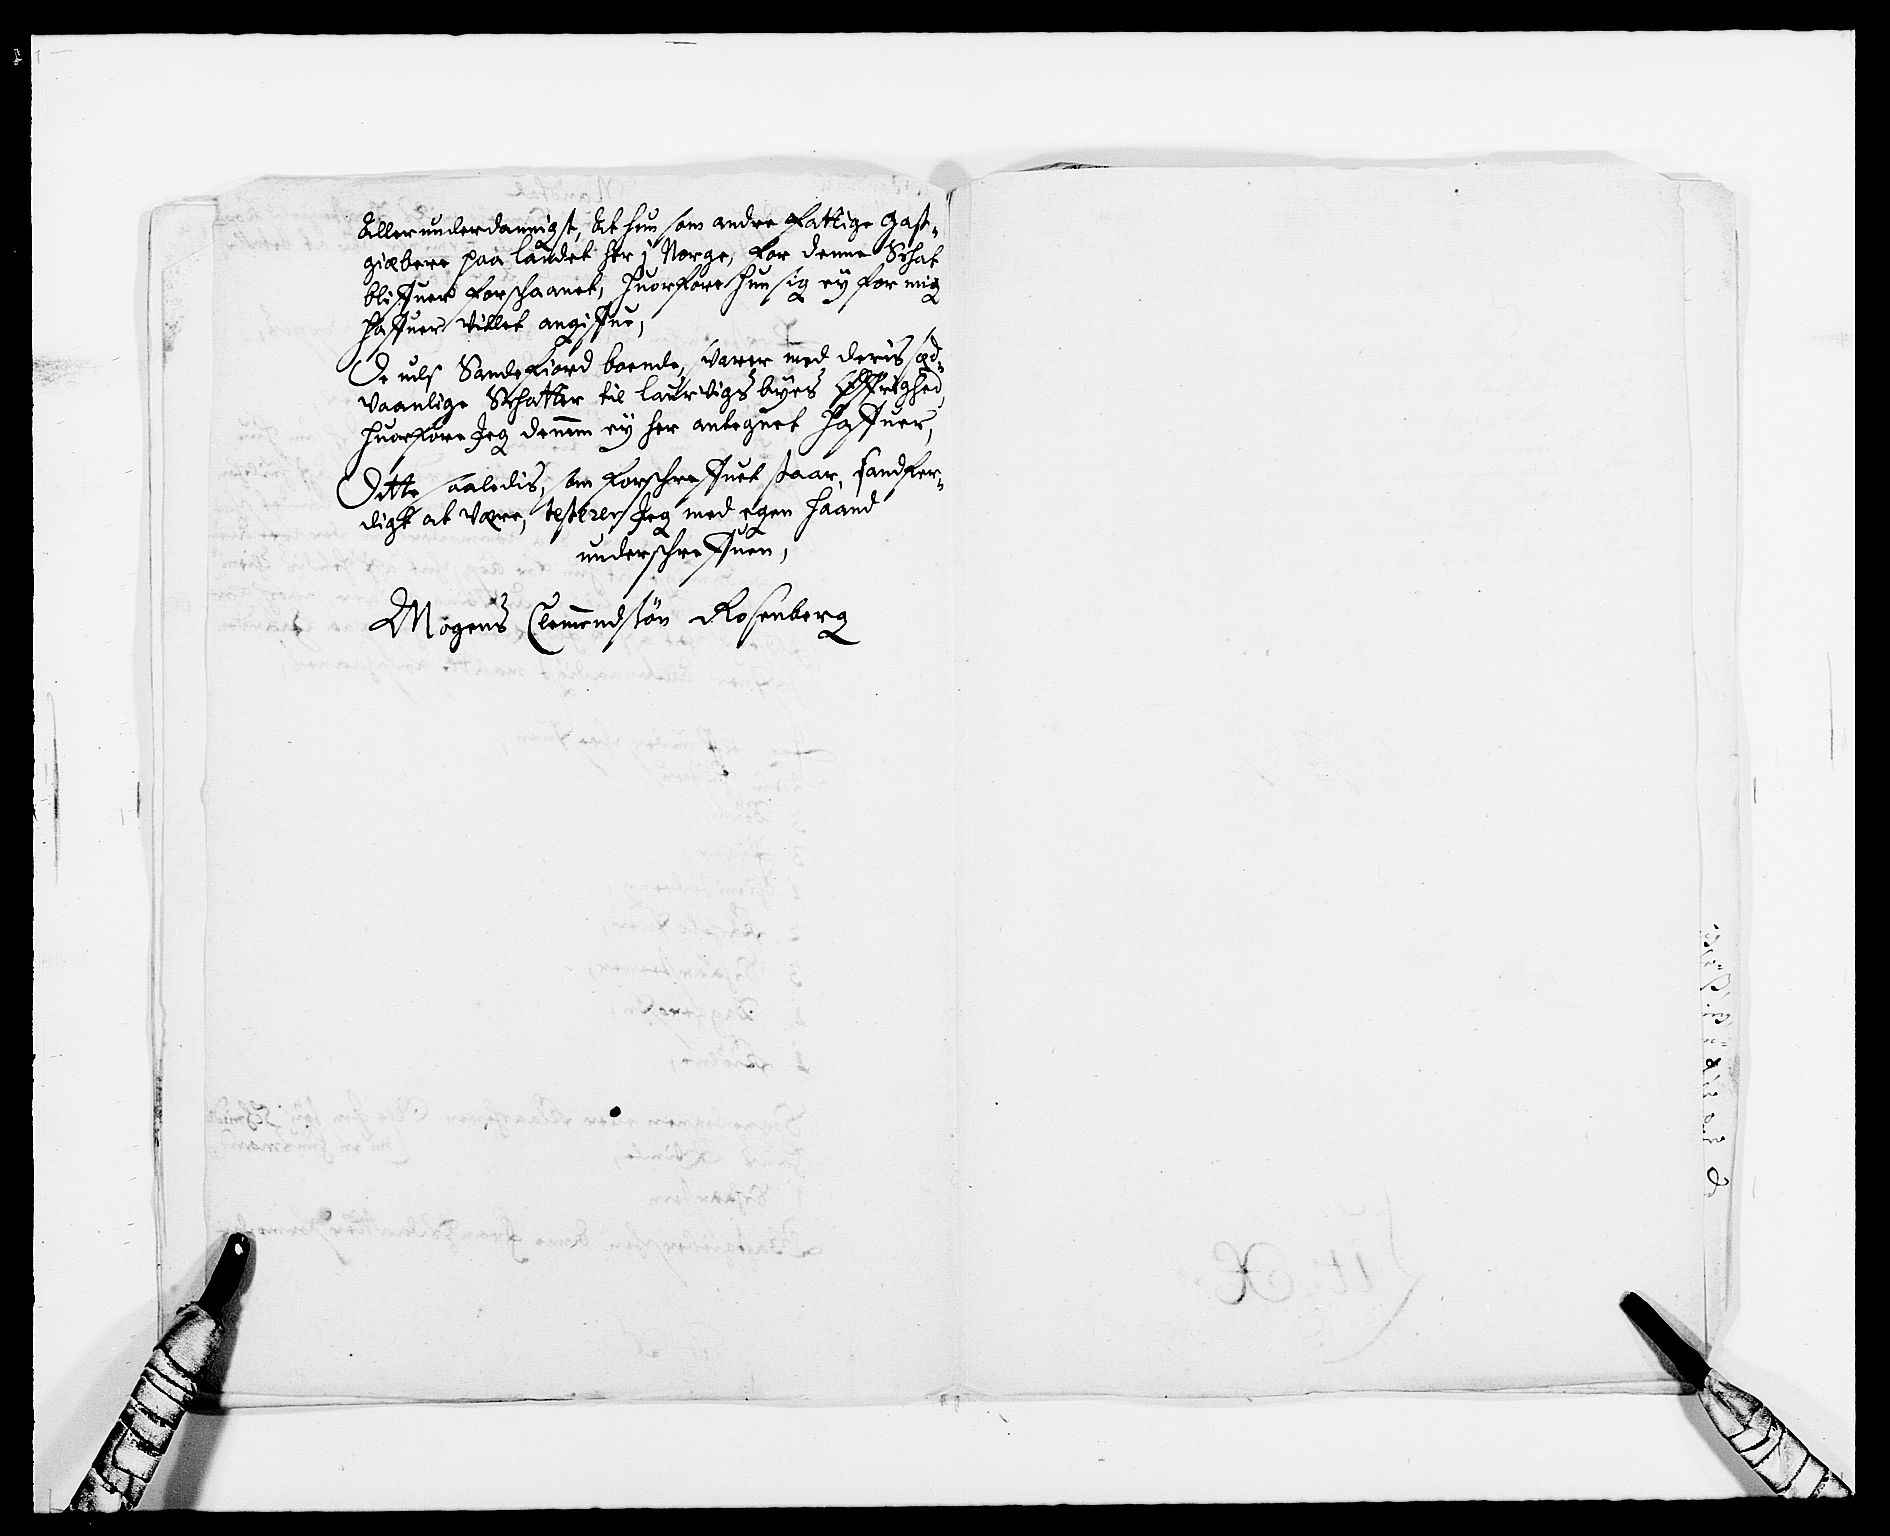 Allerunderdannigst, At hun som andre fattige gast-
giæbere paa landet her j Norge, for denne Schat
bliffuer forschaanet, huorfore hun sig ey for mig
haffuer villet angiffue,
De udj Sandefiord boende, svarer med deris sæd-
vaanlige Schatter til laurvigs byes Øffrighed,
huorfore Jeg dennem ey her antegnet haffuer,
Dette saaledis, som forschreffuet staar, sandfer-
digt at være, testerer Jeg med egen haand
underschreffuen,
Mogens Clemendsøn Rosenberg